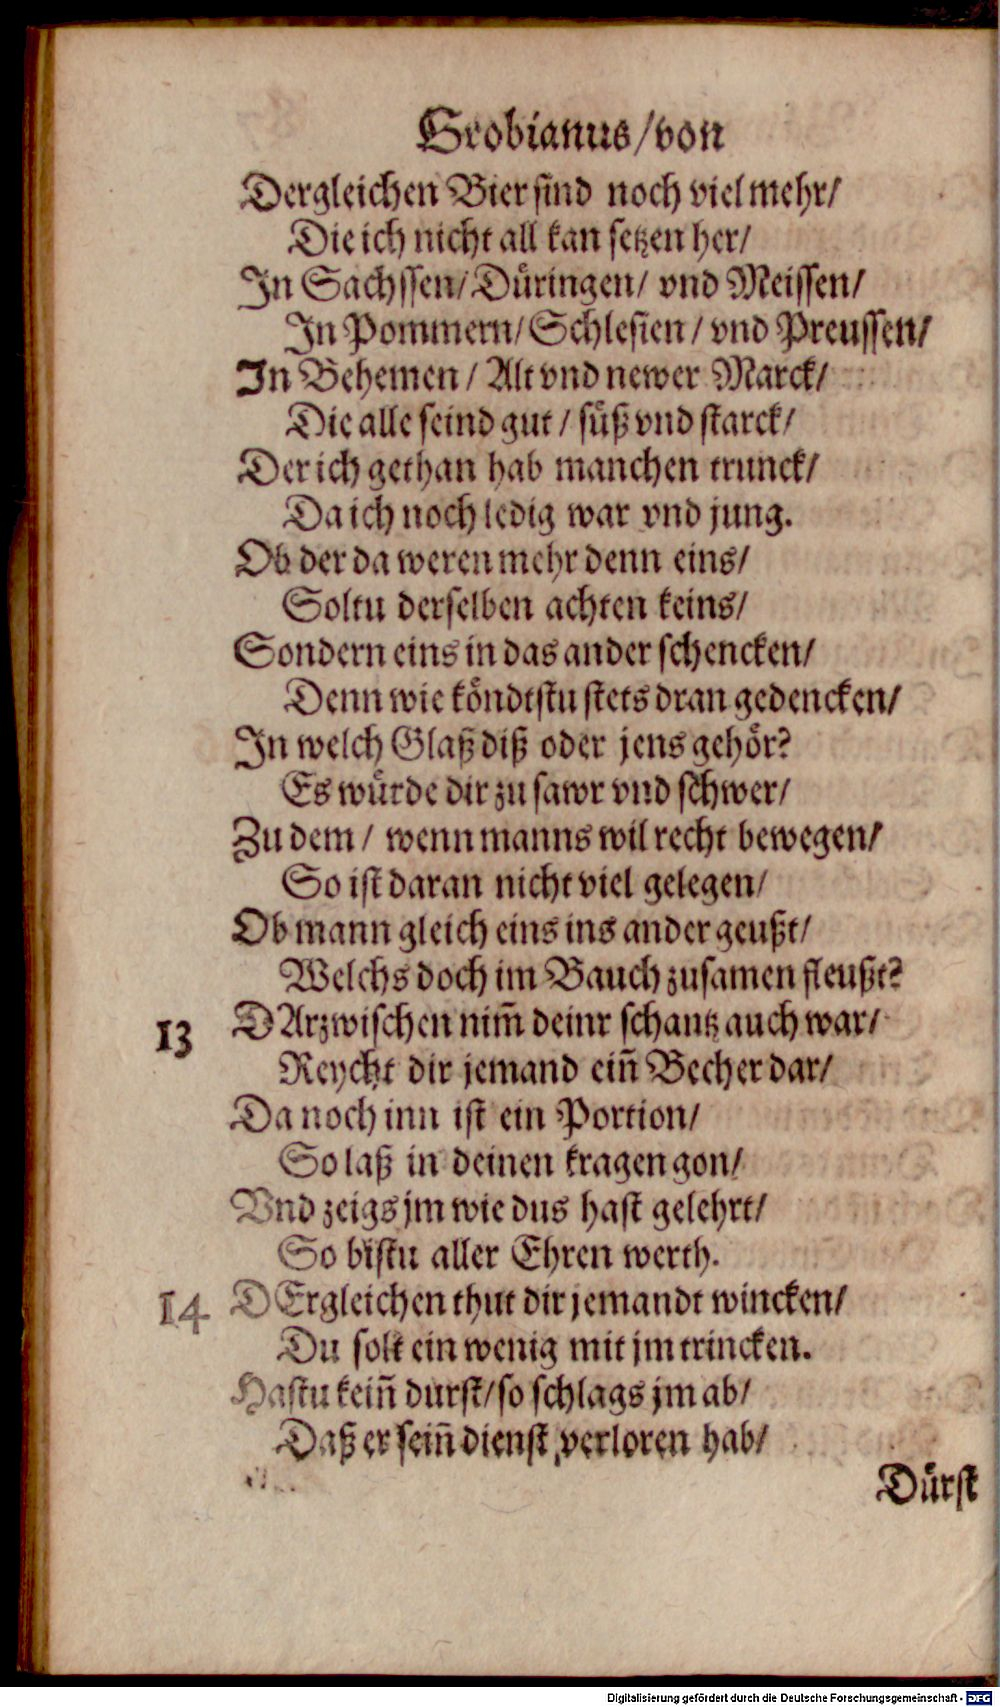 Grobianus/von
Dergleichen Bier sind noch viel mehr/
Die ich nicht all kan setzen her/
In Sachssen/Düringen/ vnd Meissen/
In Pommern/Schlesien/vnd Preussen/
In Behemen/ Alt vnd newer Marck/
Die alle seind gut/ süß vnd starck/
Der ich gethan hab manchen trunck/
Da ich noch ledig war vnd jung.
Ob der da weren mehr denn eins/
Soltu derselben achten keins/
Sondern eins in das ander schencken/
Denn wie köndtstu stets dran gedencken/
In welch Glaß diß oder jens gehör?
Es würde dir zu sawr vnd schwer/
Zu dem/ wenn manns wil recht bewegen/
So ist daran nicht viel gelegen/
Ob mann gleich eins ins ander geußt/
Welchs doch im Bauch zusamen fleußt?
13 DArzwischen nim̃ deinr schantz auch war/
Reycht dir jemand eiñ Becher dar/
Da noch inn ist ein Portion/
So laß in deinen kragen gon/
Vnd zeigs jm wie dus hast gelehrt/
So bistu aller Ehren werth.
14 DErgleichen thut dir jemandt wincken/
Du solt ein wenig mit jm trincken.
Hastu keiñ durst/so schlags jm ab/
Daß er seiñ dienst verloren hab/
Dürst
Digitalisierung gefördert durch die Deutsche Forschungsgemeinschaft - DFG